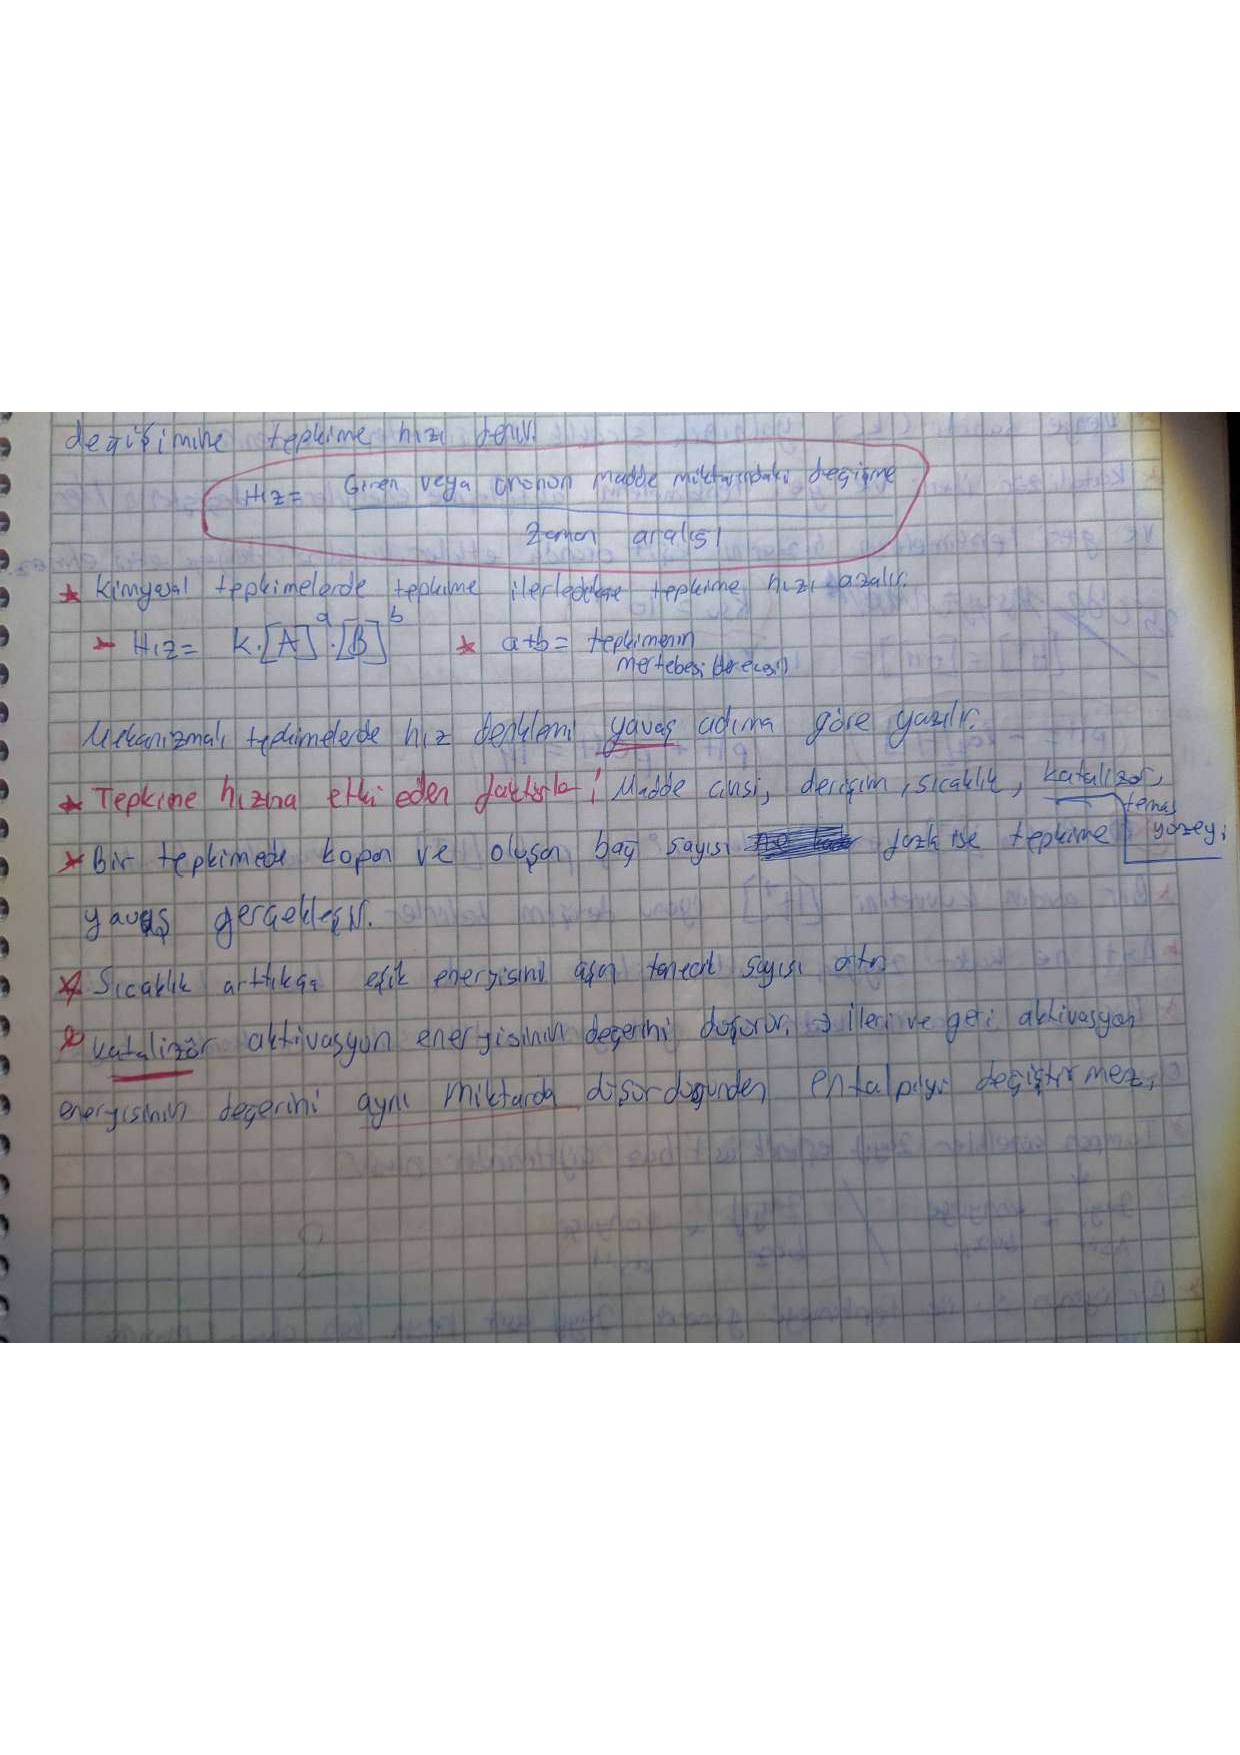 değişimine tepkime hızı denir.
Hız = Giren veya ürünün madde miktarındaki değişme
Zaman aralığı
* Kimyasal tepkimelerde tepkime ilerledikçe tepkime hızı azalır.
* Hız = k.[A]^a.[B]^b * a+b = tepkimenin
mertebesi (derecesi)
Mekanizmalı tepkimelerde hız denklemi yavaş adıma göre yazılır.
* Tepkime hızına etki eden faktörler; Madde cinsi, derişim, sıcaklık, katalizör,
temas
yüzeyi
* Bir tepkimede kopan ve oluşan bağ sayısı fazla ise tepkime
yavaş gerçekleşir.
* Sıcaklık arttıkça eşik energisini aşan tanecik sayısı artar
* Katalizör aktivasyon energisinin değerini düşürür. → ileri ve geri aktivasyon
energisinin değerini aynı miktarda düşürdüğünden entalpiyi değiştirmez.